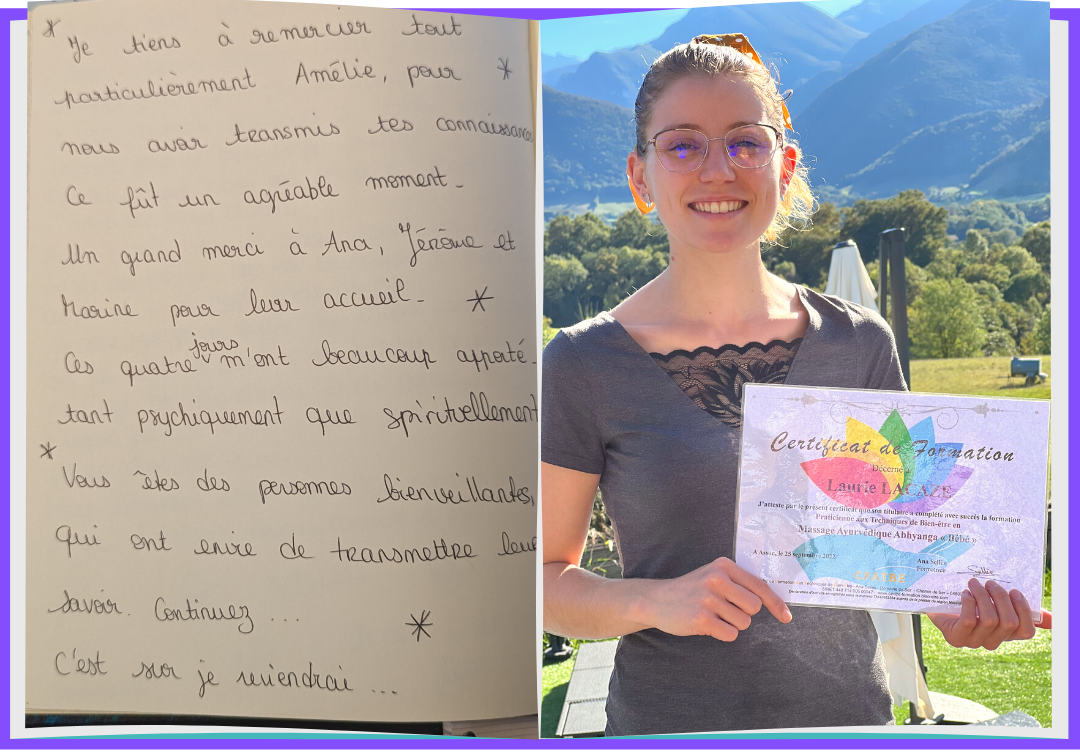 * Je tiens à remercier tout
particulièrement Amélie, pour *
nous avoir transmis tes connaissances
Ce fût un agréable moment.
Un grand merci à Ana, Jérôme et
Marine pour leur accueil. *
Ces quatre jours m'ont beaucoup apporté.
tant psychiquement que spirituellement
*
Vous êtes des personnes bienveillantes,
qui ont envie de transmettre leur
savoir. Continuez ... *
C'est sur je reviendrai ...
Certificat de Formation
Décerné à
Laurie LACAZE
J'atteste par le présent certificat que son titulaire a complété avec succès la formation
Praticienne aux Techniques de Bien-être en
Massage Ayurvédique Abhyanga « Bébé »
A Asasp, le 25 septembre 2022
Ana Sellès
Formatrice